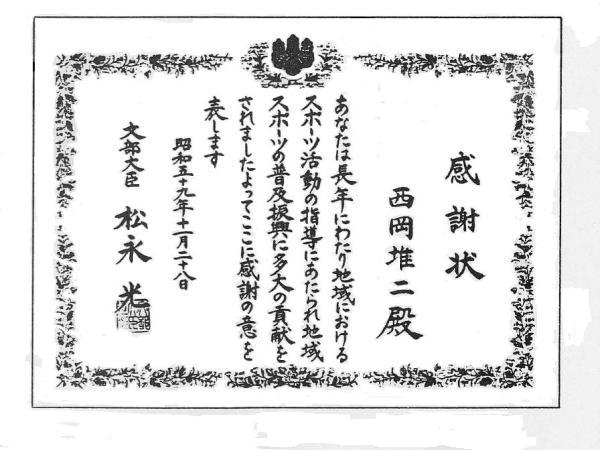 感謝状
西岡堆二殿
あなたは長年にわたり地域における
スポーツ活動の指導にあたられ地域
スポーツの普及振興に多大の貢献を
されましたよってここに感謝の意を
表します
昭和五十九年十一月二十八日
文部大臣 松永光